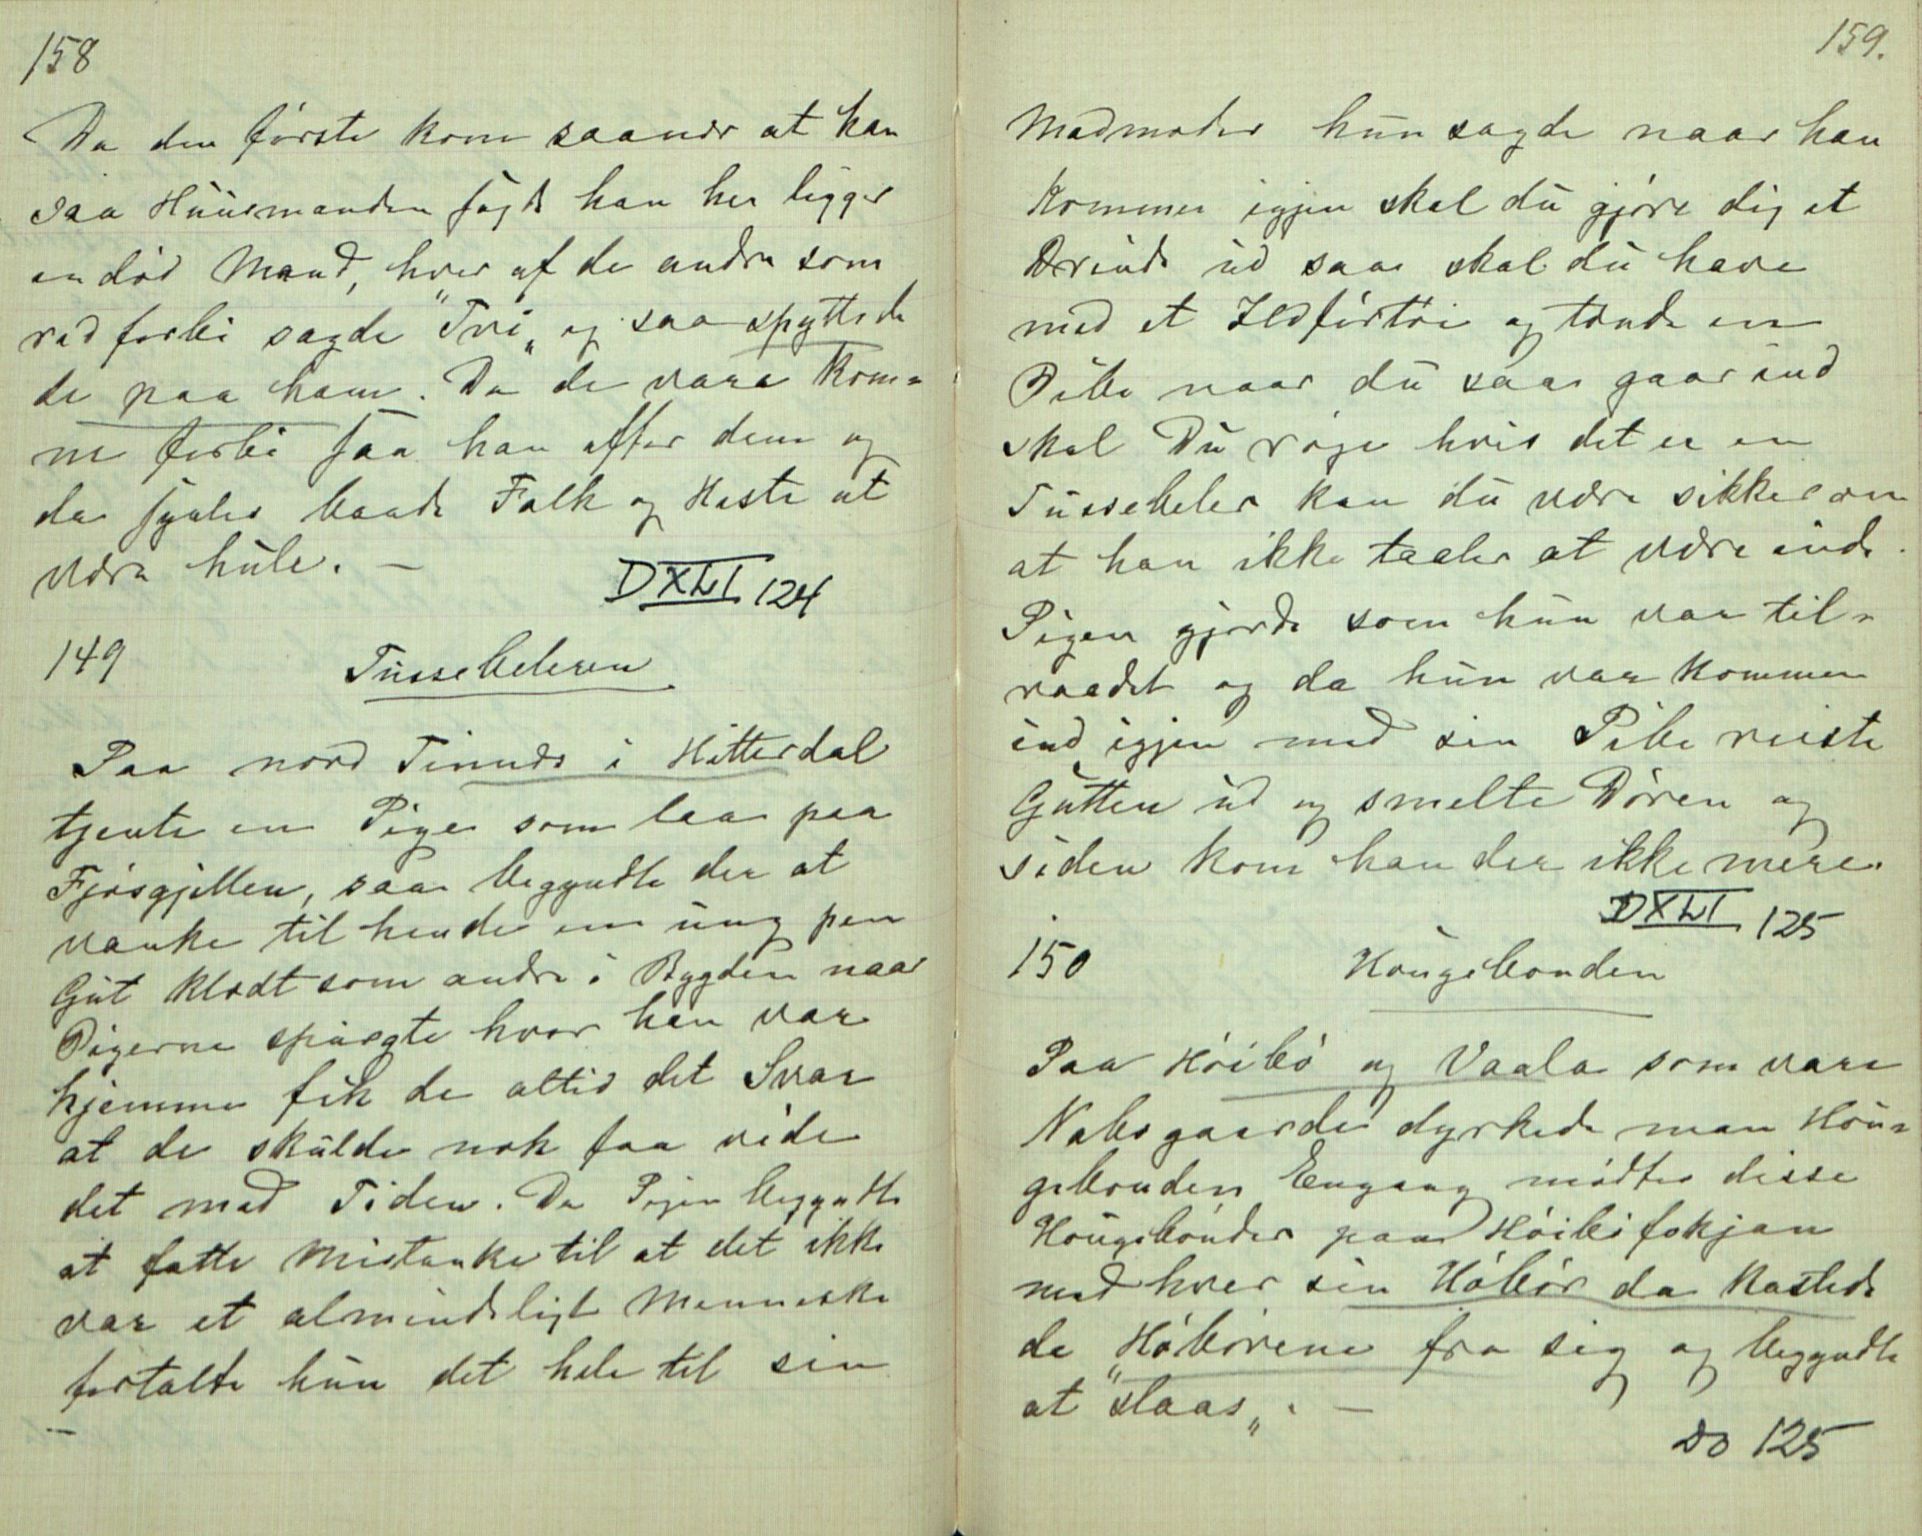 158
Da den første kom saanær at han
saa Huusmanden sagde han her ligger
en død Mand, hver af de andre som
red forbi sagde "Tvi„ og saa spyttede
de paa ham. Da de vare kom=
ne forbi saa han efter dem og
da syntes baade Folk og Heste at
være hule. —
DXLI 124
149
Tussebeleren
Paa nord Tinnæs i Hitterdal
tjente en Pige som laa paa
Fjøsgjellen, saa begyndte der at
vanke til hende en ung pen
Gut klædt som andre i Bygden naar
Pigerne spurgte hvor han var
hjemme fik de altid det Svar
at de skulde nok faa vide
det med Tiden. Da Pigen begyndte
at fatte Mistanke til at det ikke
var et almindeligt Menneske
fortalte hun det hele til sin
159.
Madmoder hun sagde naar han
kommer igjen skal du gjøre dig et
Ærinde ud saa skal du have
med et Ildførtøi og tænde en
Pibe naar du saa gaar ind
skal Du røge hvis det er en
Tussebeler kan du være sikker om
at han ikke taaler at være inde.
Pigen gjorde som hun var til=
raadet og da hun var kommen
ind igjen med sin Pibe reiste
Gutten ud og smelte Døren og
siden kom han der ikke mere.
DXLI 125
150
Hougebonden
Paa Høibø og Vaala som vare
Nabogaarde dyrkede man Hou=
gebonden Engang mødtes disse
Hougebønder paa Høibøfokjan
med hver sin Høbør da kastede
de Høbørene fra sig og begyndte
at "slaas„. —
Do 125